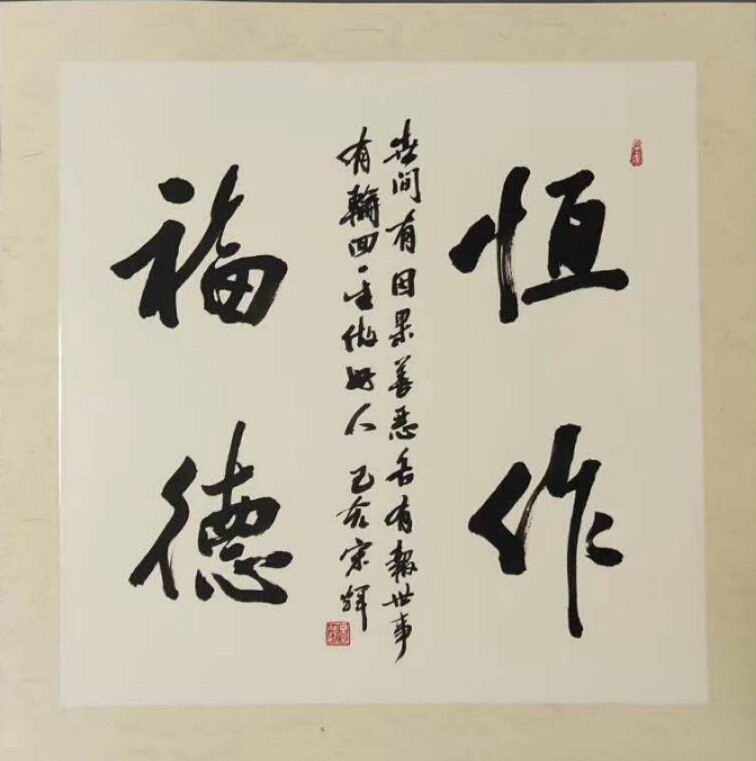 恒作
世间有因果善恶各有报世事
有轮回一生做好人 己亥 宋辉
福德